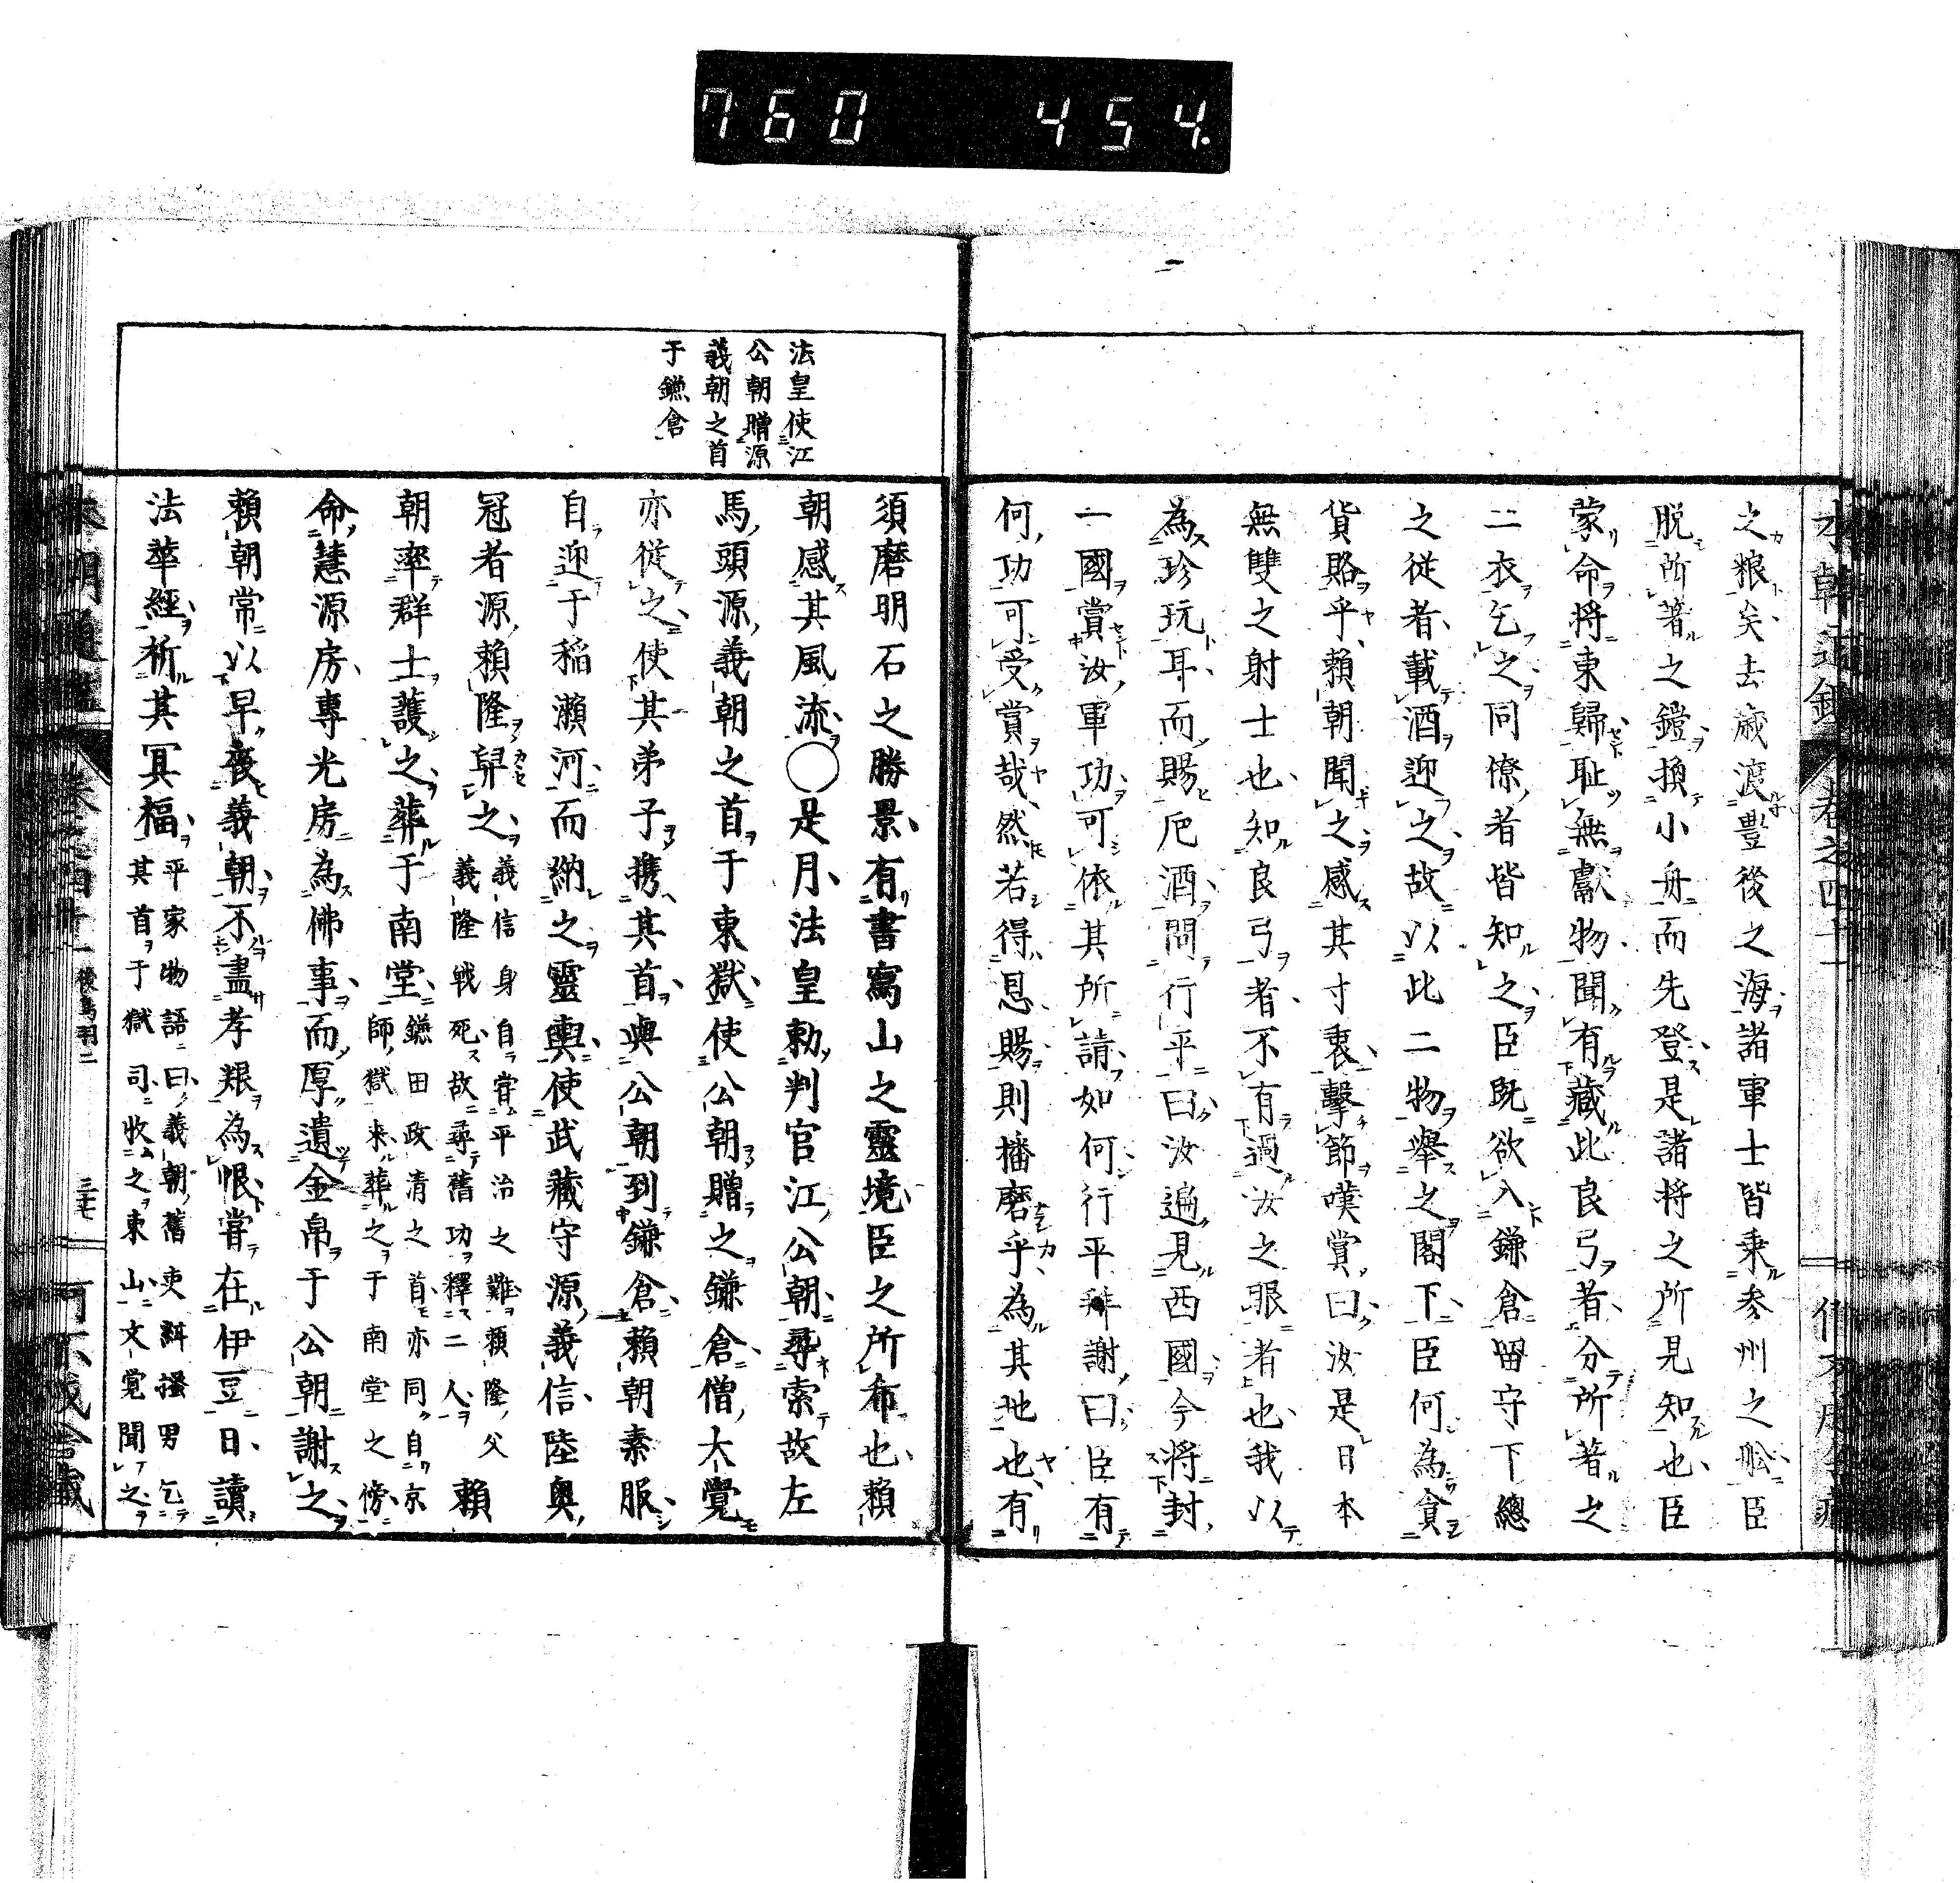 760 454.
之粮矣去歳渡豊後之海諸軍士皆乗参州之舩臣
脱所著之鎧換小舟而先登是諸将之所見知也臣
蒙命将東歸耻無獻物聞有藏此良弓者分所著之
二衣乞之同僚者皆知之臣既欲入鎌倉留守下總
之従者載酒迎之故以此二物舉之閣下臣何為貪
貨賂乎頼朝聞之感其寸衷擊節嘆賞曰汝是日本
無雙之射士也知良弓者不有過汝之眼者也我以
為珍玩耳而賜卮酒問行平曰汝遍見西國今将封
一國賞汝軍功可依其所請如何行平拜謝曰臣有
何功可受賞哉然若得恩賜則播磨乎為其地也有
法皇使江
公朝贈源
義朝之首
于鎌倉
須磨明石之勝景有書寫山之靈境臣之所希也頼
朝感其風流○是月法皇勅判官江公朝尋索故左
馬頭源義朝之首于東獄使公朝贈之鎌倉僧大覺
亦従之使其弟子携其首與公朝到鎌倉頼朝素服
自迎于稲瀬河而納之靈輿使武藏守源義信陸奥
冠者源頼隆舁之義信身自嘗平治之難頼隆父
義隆戦死故尋舊功釋二人頼
朝率群士護之葬于南堂鎌田政清之首亦同自京
師獄来葬之于南堂之傍
命慧源房專光房為佛事而厚遺金帛于公朝謝之
頼朝常以早喪義朝不盡孝艱為恨嘗在伊豆日讀
法華經祈其冥福平家物語曰義朝舊吏紺掻男乞
其首于獄司收之東山文覚聞之
後鳥羽二
三七